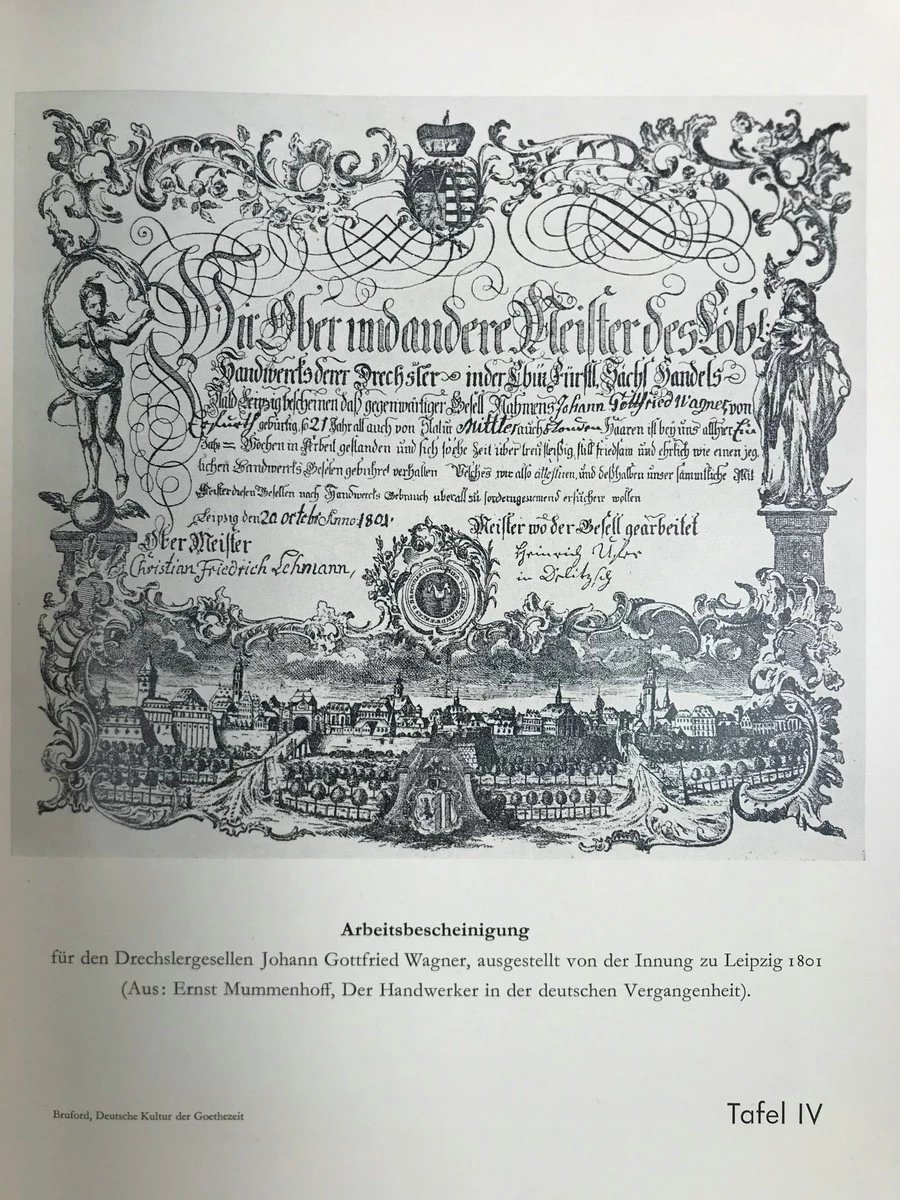 Wir Ober und andere Meister des Löbl:
Handwercks derer Drechsler in der Chur Fürstl. Sächs Handels
Stadt Leipzig bescheinen daß gegenwärtiger Gesell Nahmens Johann Gottfried Wagner von
Erfurth gebürtig, so 21 Jahr alt auch von Statur Mittler auch Haaren ist bey uns allhier Ein
Jahr Wochen in Arbeit gestanden und sich solche Zeit über treu fleißig, still friedsam und ehrlich wie einen jeg
lichen Handwercks Gesellen gebühret verhalten Welches wir also attestiren, und deßhalben unser sämmtliche Mit
Meister diesen Gesellen nach Handwercks Gebrauch überall zu fördern ersuchen wollen
Leipzig den 20 octobr Anno 1801.
Meister wo der Gesell gearbeitet
Ober Meister
Christian Friedrich Lehmann,
Heinrich
in Delitzsch
Arbeitsbescheinigung
für den Drechslergesellen Johann Gottfried Wagner, ausgestellt von der Innung zu Leipzig 1801
(Aus: Ernst Mummenhoff, Der Handwerker in der deutschen Vergangenheit).
Bruford, Deutsche Kultur der Goethezeit
Tafel IV